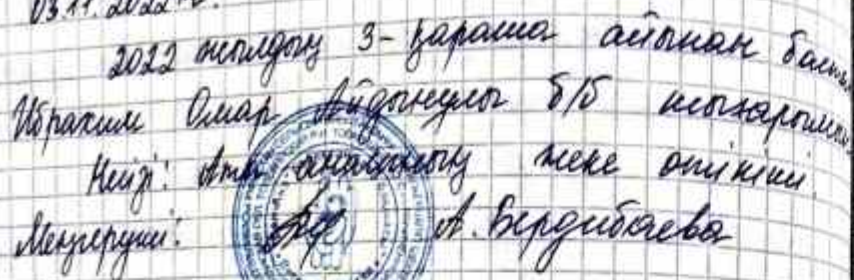 03.11.2022 ж.
2022 жылдың 3-қараша айынан бастап
Ибрахим Омар Айдынұлы б/б шығарылсын
Негізі: Ата анасының жеке өтініші
Меңгеруші: А. Бердибаева